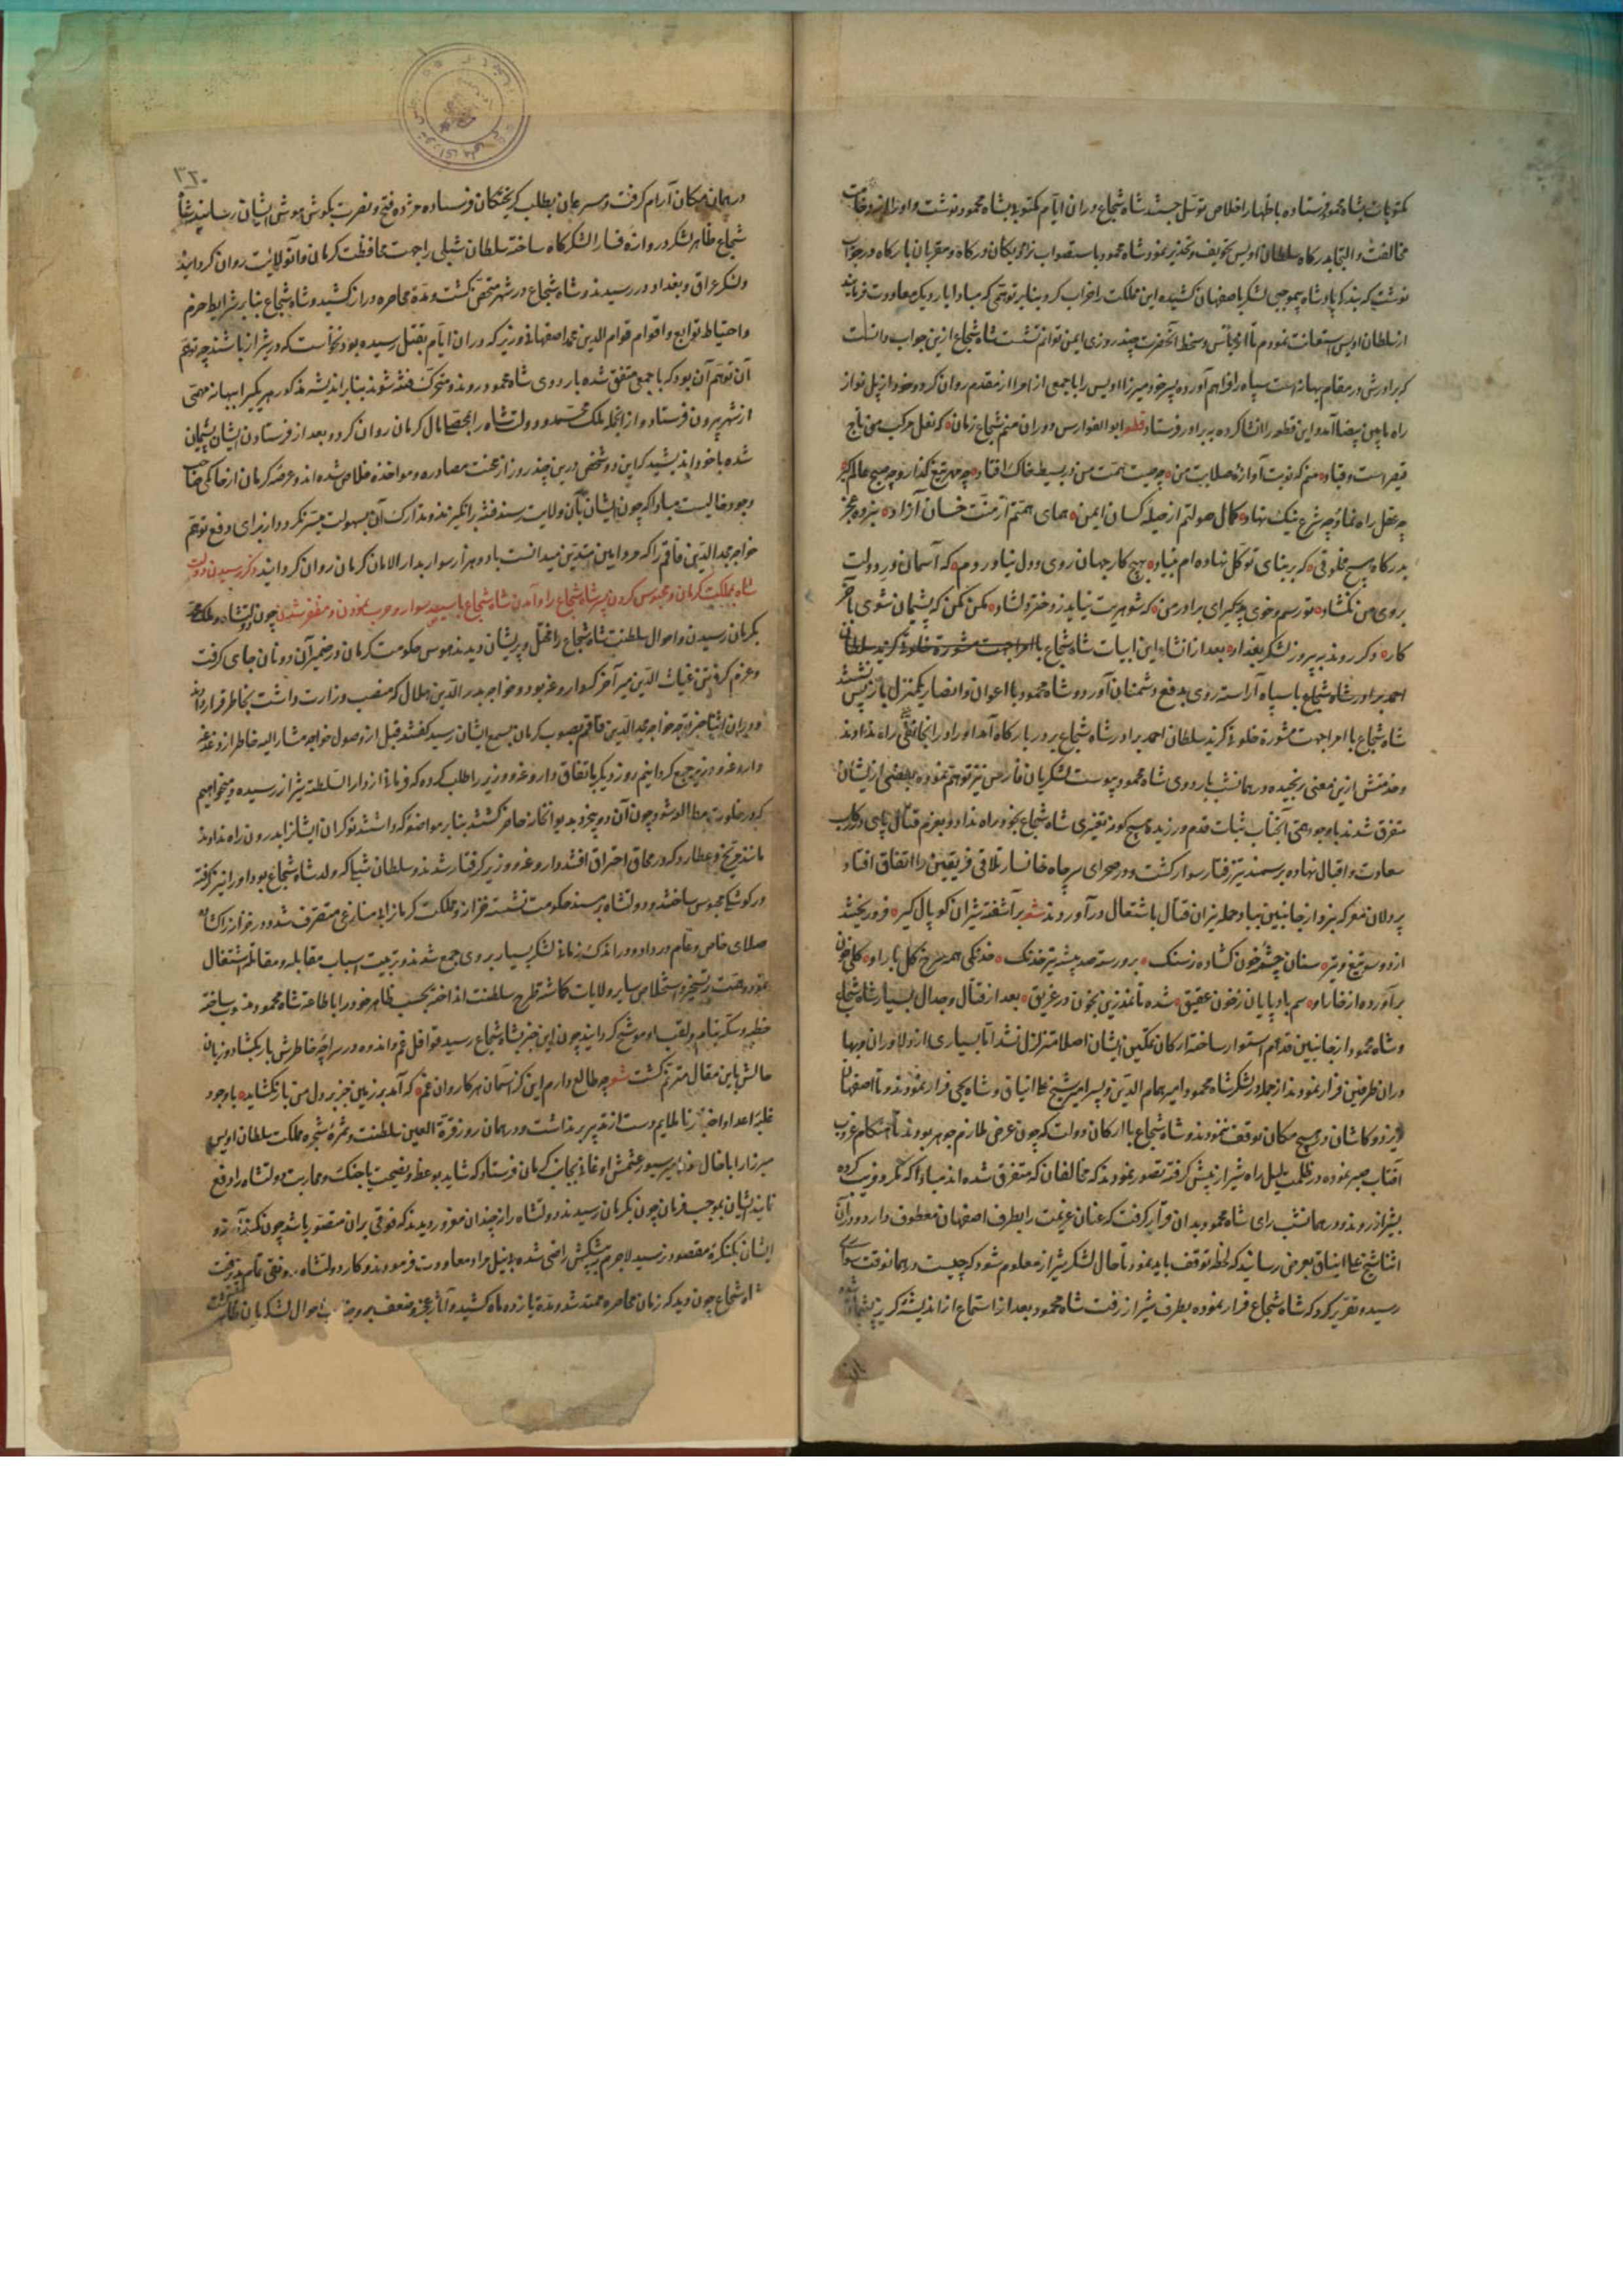 مکتوبات بشاه محمود فرستاده باظهار اخلاص توسل جستند شاه شجاع دران ایام مکتوبی بشاه محمود نوشت و او را از وخامت
مخالفت و التجا بدرکاه سلطان اویس تخویف و تحذیر نمود شاه محمود باستصواب نزدیکان درکاه و مقربان بارکاه در جواب
نوشت که بندکی پادشاه بیموجبی لشکر باصفهان کشیده این مملکت را خراب کرد و بنابر توهمی که مبادا بار دیک معاودت فرماید
از سلطان اویس استعانت نمودم تا از باس و سخط آنحضرت چند روزی ایمن توانم نشست شاه شجاع ازین جواب دانست
که برادرش در مقام بهانه است سپاه را فراهم آورده پسر خود میرزا اویس را با جمعی از امرا از مقدم روان کرد و خود از پل نواز
راه باپین بیضا آمد و این قطعه را انشا کرده به برادر فرستاد قطعه ابو الفوارس دوران منم شجاع زمان که نعل مرکب من تاج
قیصر است و قباد منم که نوبت آوازه صلابت من چو صیت همت من در بسیط خاک افتاد چو مهر تیغ گذار و چو صبح عالم کیر
چو عقل راه نمای و چو شرع نیک نهاد کمال صولتم از حیله کسان ایمن همای همتم از منت خسان آزاد نبرده عجز
بدرکاه هیچ مخلوقی که بر بنای توکل نهاده ام بنیاد بهیچ کار جهان روی دل نیاوردم که آسمان در دولت
بروی من نکشاد تو رسم و خوی پدر کیر ای برادر من که شوهریت نیاید ز دختر دلشاد مکن مکن که پشیمان شوی بآخر
کار دکر روند به پیروز لشکر بغداد بعد از انشاء این ابیات شاه شجاع با امرا جهت مشورة خلوة کزید سلطان
احمد برادر شاه شجاع با سپاه آراسته روی بدفع دشمنان آورد و شاه محمود با اعوان و انصار یکمنزل باز پس نشستند
شاه شجاع با امرا جهت مشورة خلوة کزید سلطان احمد برادر شاه شجاع بر در بارکاه آمد او را در انجا راه ندادند
و خدمتش ازین معنی رنجیده در همانشب باردوی شاه محمود پیوست لشکریان فارس نیز توهم نموده بعضی ازیشان
متفرق شدند با وجود همی آنجناب ثبات قدم ورزیده هیچ کونه تغیری شاه شجاع بخود راه نداد و بعزم قتال پای در رکاب
سعادت و اقبال نهاده بر سمند تیز رفتار سوار کشت و در صحرای سر چاه خانسار تلاقی فریقین را اتفاق افتاد
پردلان معرکه نبرد از جانبین بباد حمله نیران قتال باشتعال درآوردند شعر برآشفته شیران کوپال کیر فرو ریختند
از دو سو تیغ و تیر سنان چشمه خون کشاده ز سنک برو رسته صد بیشه تیر خدنک خدنکی همه سرخ کل بار او کلی خون
برآورده از خار او سم بادپایان ز خون عقیق شده تا نمد زین بخون در غریق بعد از قتال و جدال بسیار شاه شجاع
و شاه محمود از جانبین قدم استوار ساخته ارکان تمکین ایشان اصلا متزلزل نشد اما بسیاری از دلاوران و بها
دران طرفین فرار نمودند از جمله در لشکر شاه محمود امیر همام الدین و پسر امیر شیخ علی ایناق و شاه یحیی فرار نمودند و تا اصفهان
یزد و کاشان در هیچ مکان توقف ننمودند و شاه شجاع با ارکان دولت که چون عرض ملازم جوهر بودند تا هنکام غروب
آفتاب صبر نموده در ظلمت لیل راه شیراز پیش کرفته تصور نمودند که مخالفان که متفرق شده اند مبادا که بمکر و فریب کرده
بشیراز روند و در همانشب رای شاه محمود بدان قرار کرفت که عنان عزیمت را بطرف اصفهان معطوف دارد و دران
اثنا شیخ علی ایناق بعرض رسانید که لحظه توقف باید نمود تا حال لشکر شیراز معلوم شود که چیست در همانوقت سواری
رسید و تقریر کرد که شاه شجاع فرار نموده بطرف شیراز رفت شاه محمود بعد از استماع از اندیشه کریز پشیمان شده
۳۲۰
در همان مکان آرام کرفت و مسرعان بطلب کریختکان فرستاده مژده فتح و نصرت بکوش هوش ایشان رسانیدند شاه
شجاع ظاهر لشکر دروازه فسا را لشکرکاه ساخته سلطان شبلی را جهت محافظت کرمان و آنولایت روان کردانید
و لشکر عراق و بغداد در رسیدند و شاه شجاع در شهر متحصن کشت و مدة محاصره دراز کشید و شاه شجاع بنابر شرایط حزم
و احتیاط توابع و اقوام قوام الدین محمد اصفهانی وزیر که دران ایام بقتل رسیده بود نخواست که در شیراز باشند چه توهم
آن توهم آن بود که با جمعی متفق شده باردوی شاه محمود روند و متحرک فتنه شوند بنابر اندیشه مذکور هر یکی را ببهانه مهمی
از شهر بیرون فرستاد و از انجمله ملک محمد و دولتشاه را بتحصیل مال کرمان روان کرد و بعد از فرستادن ایشان پشیمان
شده با خود اندیشید که این دو شخص درین چند روز از محنت مصادره و مواخذه خلاص شده اند و عرصه کرمان از حاکمی صاحب
وجود خالیست مبادا که چون ایشان بآن ولایت رسند فتنه را انکیزند و تدارک آن بسهولت میسر نکردد از برای دفع توهم
خواجه مجد الدین قاقم را که مرد امین متدین میدانست با دو هزار سوار بدار الامان کرمان روان کردانید ذکر رسیدن دولت
شاه بمملکت کرمان و محبوس کردن پسر شاه شجاع را و آمدن شاه شجاع با سیصد سوار و حرب نمودن و مظفر شدن چون دولتشاه و ملک محمد
بکرمان رسیدن و احوال سلطنت شاه شجاع را مختل و پریشان دیدند هوس حکومت کرمان در ضمیر آن دونان جای کرفت
و عزم کرفتن غیاث الدین میر آخر که داروغه بود و خواجه بدر الدین هلال که منصب وزارت داشت بخاطر قرار دادند
و دران اثنا خبر توجه خواجه مجد الدین قاقم بصوب کرمان بسمع ایشان رسید کفتند قبل از وصول خواجه مشار الیه خاطر از دغدغه
داروغه و وزیر جمع کردانیم روز دیکر باتفاق داروغه و وزیر را طلب کرده که فرمانی از دار السلطنة شیراز رسیده و میخواهیم
که در خلوت مطالعه شود چون آن دو بیخرد بدیوانخانه حاضر کشتند بنابر مواضعه که داشتند نوکران ایشانرا بدرون راه ندادند
مانند مریخ و عطارد که در محاق احتراق افتند داروغه و وزیر کرفتار شدند و سلطان شبلی که ولد شاه شجاع بود او را نیز کرفته
در کوشک محبوس ساختند و دولتشاه بر مسند حکومت نشسته خزاین و مملکت کرمانرا بی منازعی متصرف شد و در خزاین را کشاده
صلای خاص و عام در داد و در اندک زمانی لشکر بسیار بروی جمع شدند و بترتیب اسباب مقابله و مقاتله اشتغال
نمود و همت بر تسخیر و استخلاص سایر ولایات کماشته طرح سلطنت انداخته بحسب ظاهر خود را باطاعة شاه محمود منسوب ساخته
خطبه و سکه بنام و لقب او موشح کردانید چون این خبر بشاه شجاع رسید قوافل غم و اندوه در سراچه خاطرش بار بکشاد و زبان
حالش باین مقال مترنم کشت شعر چه طالع دارم این کز آسمان هر کاروان غم که آمد بر زمین جز بر دل من بار نکشاید با وجود
غلبه اعدا و اخبار نا ملایم دست از تدبیر برنداشت و در همان روز قرة العین سلطنت و ثمره شجره مملکت سلطان اویس
میرزا را با خال امیر سیورغتمش اوغانی بجانب کرمان فرستاد که شاید بوعظ و نصیحت یا جنک و محاربت دولتشاه را دفع
نمایند ایشان بموجب فرمان چون بکرمان رسیدند دولتشاه را از چندان مغرور دیدند که فوقی بران متصور باشد چون کمند تدبیر
ایشان بکنکره مقصود نرسید لاجرم به پیشکش راضی شده بی نیل مراد معاودت فرمودند و کار دولتشاه رونقی تمام پذیرفت
شاه شجاع چون دید که زمان محاصره ممتد شد و مدة یازده ماه کشید و آثار عجز و ضعف بر احوال لشکریان ظاهر کشت